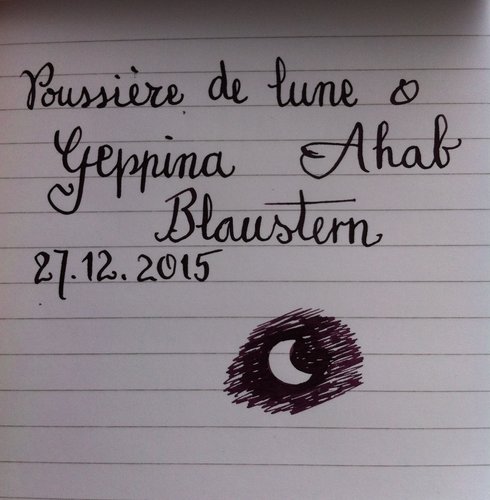 Poussière de lune
Geppina Ahab
Blaustern
27.12.2015